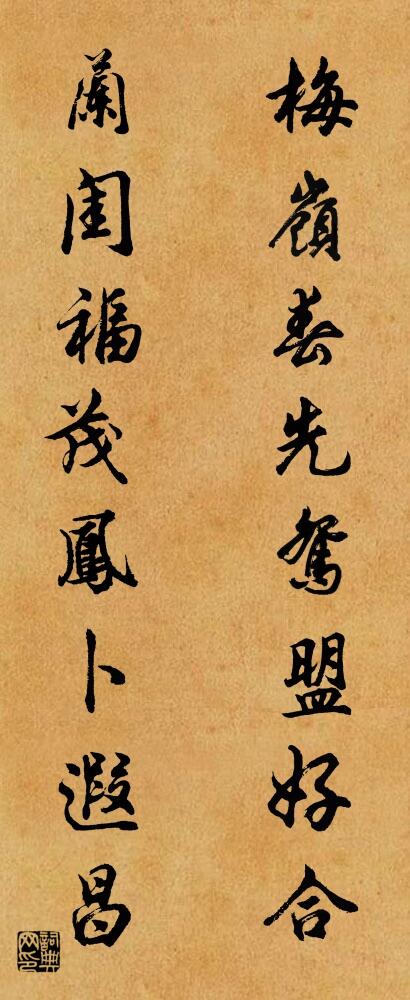 梅嶺春先鴛盟好合
蘭閨福茂鳳卜遐昌
詞典网印